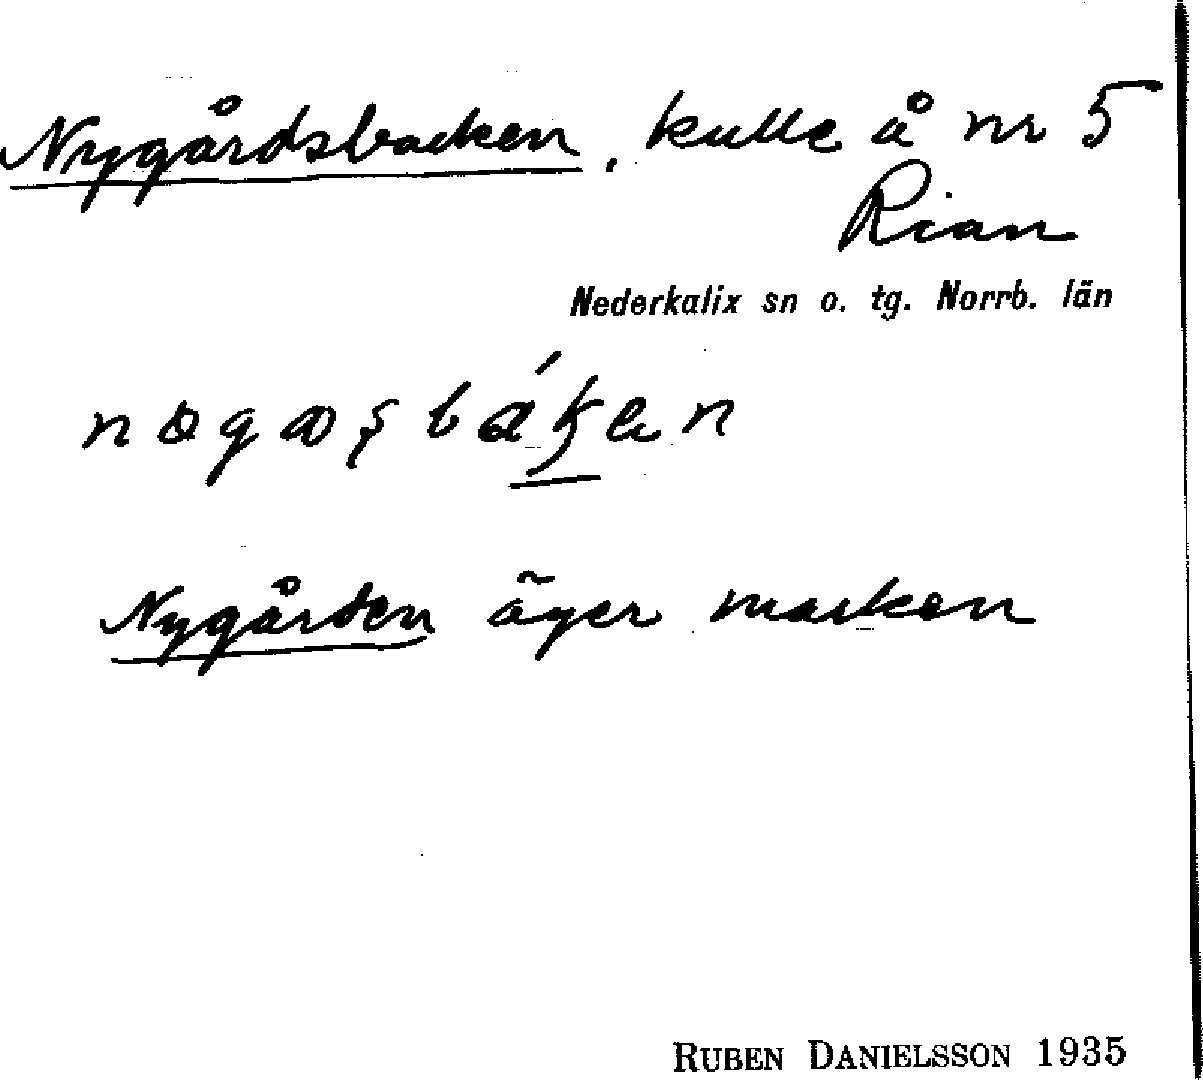 Nygårdsbacken, kulle å nr 5
Rian
Nederkalix sn o. tg. Norrb. län
Nygården äger marken
RUBEN DANIELSSON 1935